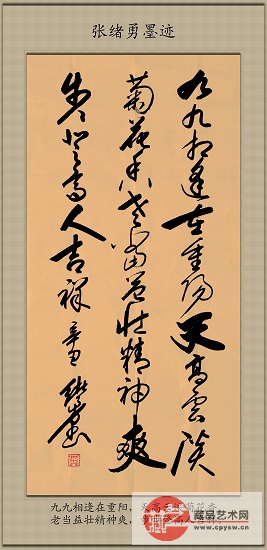 张绪勇墨迹
九九相逢在重阳天高雲淡
菊花香老当益壮精神爽
登高人吉祥
九九相逢在重阳，天高云淡菊花香。
老当益壮精神爽，登高人吉祥。
藏品艺术网
www.cpysw.cn